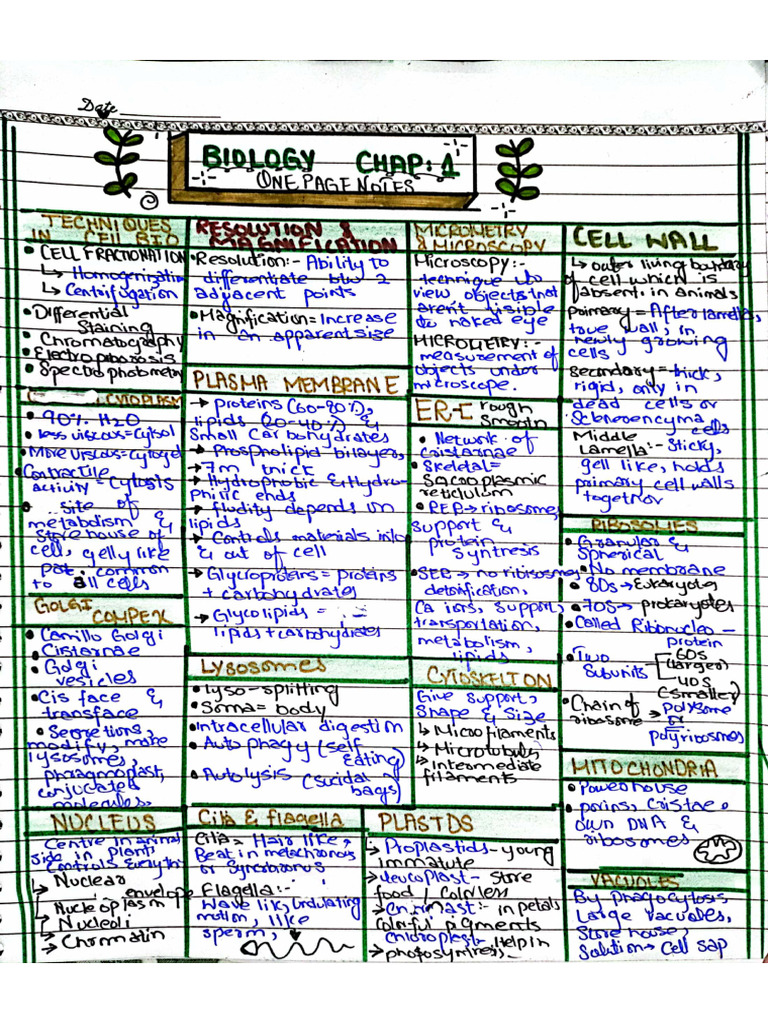 Date
BIOLOGY CHAP: 1
ONE PAGE NOTES
TECHNIQUES
IN CEll BIO
• CELL FRACTIONATION
↳ Homogenization
↳ Centrifugation
• Differential
Staining
• Chromatography
• Electrophorosis
• Spectrophotometry
RESOLUTION &
MAGNIFICATION
• Resolution:- Ability to
differentiate btw 2
adjacent points
• Magnification = Increase
in an apparent size
MICROMETRY
& MICROSCOPY
Microscopy:-
technique to
view objects that
aren't visible
to naked eye
MICROMETRY:-
measurement of
objects under
microscope.
CELL WALL
↳ outer living boundary
of cell which is
absent in animals
Primary = After lamella,
true wall, in
newly growing
cells
secondary = thick,
rigid, only in
dead cells or
Sclerenchyma cells
Middle
Lamella:- Sticky,
gell like, holds
primary cell walls
together
CYTOPLASM
• 90% H2O
• less viscous = Cytosol
• More viscous = Cytogel
• Contractile
activity = Cytosis
• site of
metabolism &
Store house of
cell, gelly like
pat. common
to all cells
PLASMA MEMBRANE
→ proteins (60-80%),
lipids (20-40%) &
Small Carbohydrates
→ Phospholipid bilayer,
→ 7m thick
→ Hydrophobic & Hydro-
philic ends
→ fludity depends on
lipids
→ Controls materials into
& out of cell
→ Glycoproteins = proteins
+ carbohydrates
→ Glycolipids =
lipids + carbohydrates
ER-[ rough
Smooth
• Network of
Cisternae
• Skeletal =
Sacroplasmic
reticulum
• RER → ribosomes,
support &
protein
Syntnesis
• SER → no ribisosmes,
detoxification,
Ca ions, Support,
transportation,
metabolism,
lipids
RIBOSOMES
• Granular &
Spherical
• No membrane
• 80s → Eukaryotes
• 70S → prokaryotes
• Called Ribonucleo-
protein
• Two
Subunits
60S
(larger)
40S
(smaller)
• Chain of
ribosome → polysome
or
polyribosomes
GOLGI
COMPEX
• Camillo Golgi
• Cistarnae
• Golgi
vesicles
• Cis face &
transface
• Secretions,
modify, make
lysosomes,
phragmoplast,
conjucated
molecules
LYSOSOMES
• Lyso-splitting
• Soma = body
• Intracellular digestion
• Autophagy (self
Eating)
• Autolysis (Sucidal
bags)
CYTOSKELTON
Give Support,
Shape & Size
↳ Microfilaments
↳ Microtobules
↳ Intermediate
filaments
MITOCHONDRIA
• Powerhouse
• porins, Cristae
• own DNA &
ribosomes
NUCLEUS
Centre in animal
side in plant
Controls Everythi
→ Nuclear
envelope
→ Nucleoplasm
→ Nucleoli
→ Chrmatin
Cilia & flagella
Cilia = Hair like,
Beat in metachronous
or Syncbronus
Flagella:-
Wave lik, Undulating
motion, like
sperm,
PLASTDS
→ Proplastids - young
immatute
→ Leucoplast - Store
food / Colorless
→ Chrmast:- in petals
Colorful pigments
chloroplast - Help in
→ photosyntnesis
VACUOLES
By phagocytosis
Large Vacuoles,
Store house,
Solution → Cell sap